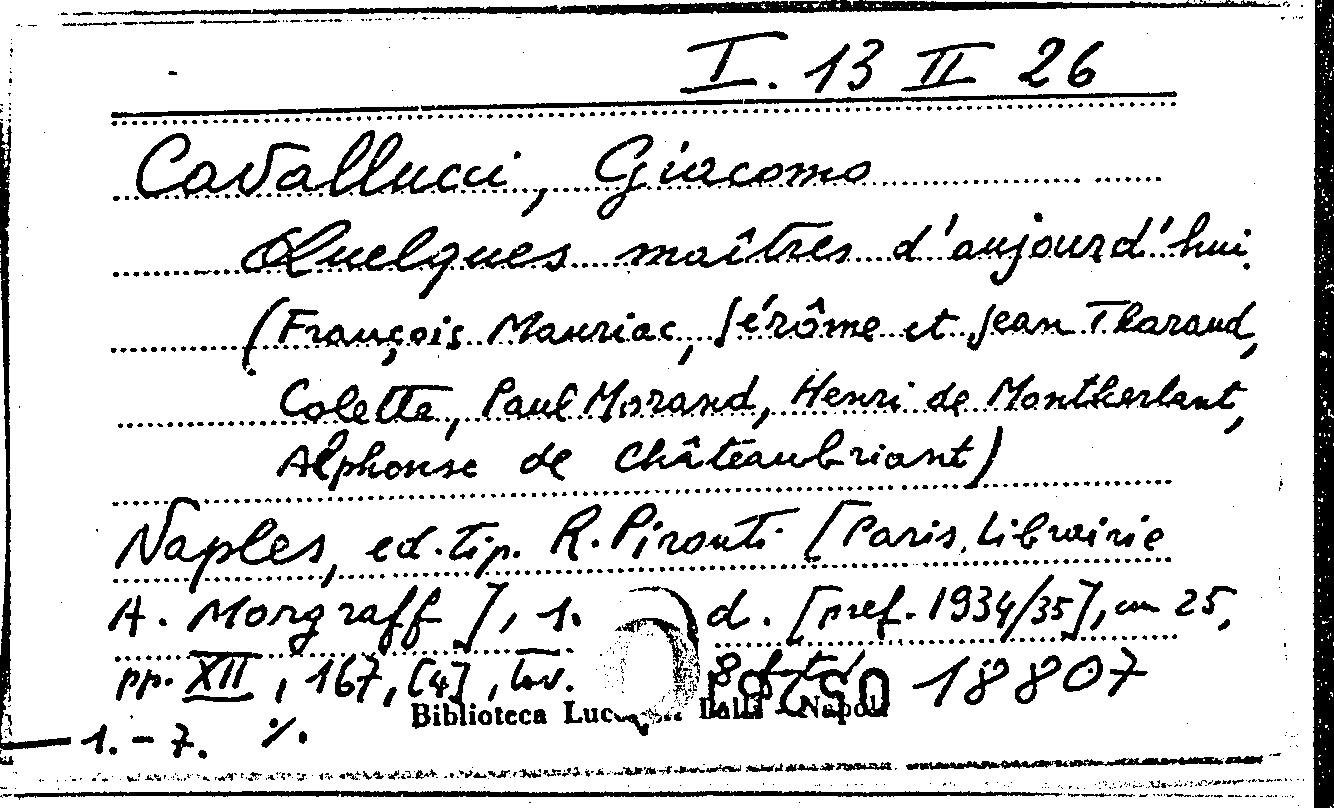 I. 13 II 26
Cavallucci, Giacomo
Quelques maîtres d'aujourd'hui
(François Mauriac, Jérôme et Jean Tharaud,
Colette, Paul Morand, Henri de Montherlant,
Alphonse de Châteaubriant)
Naples, ed. tip. R. Pironti [Paris, Librairie
A. Morgraff], 1. d. [pref. 1934/35], cm 25,
pp. XII, 167, [4], tav. 18807
Biblioteca Napoli
1. - 7. %.